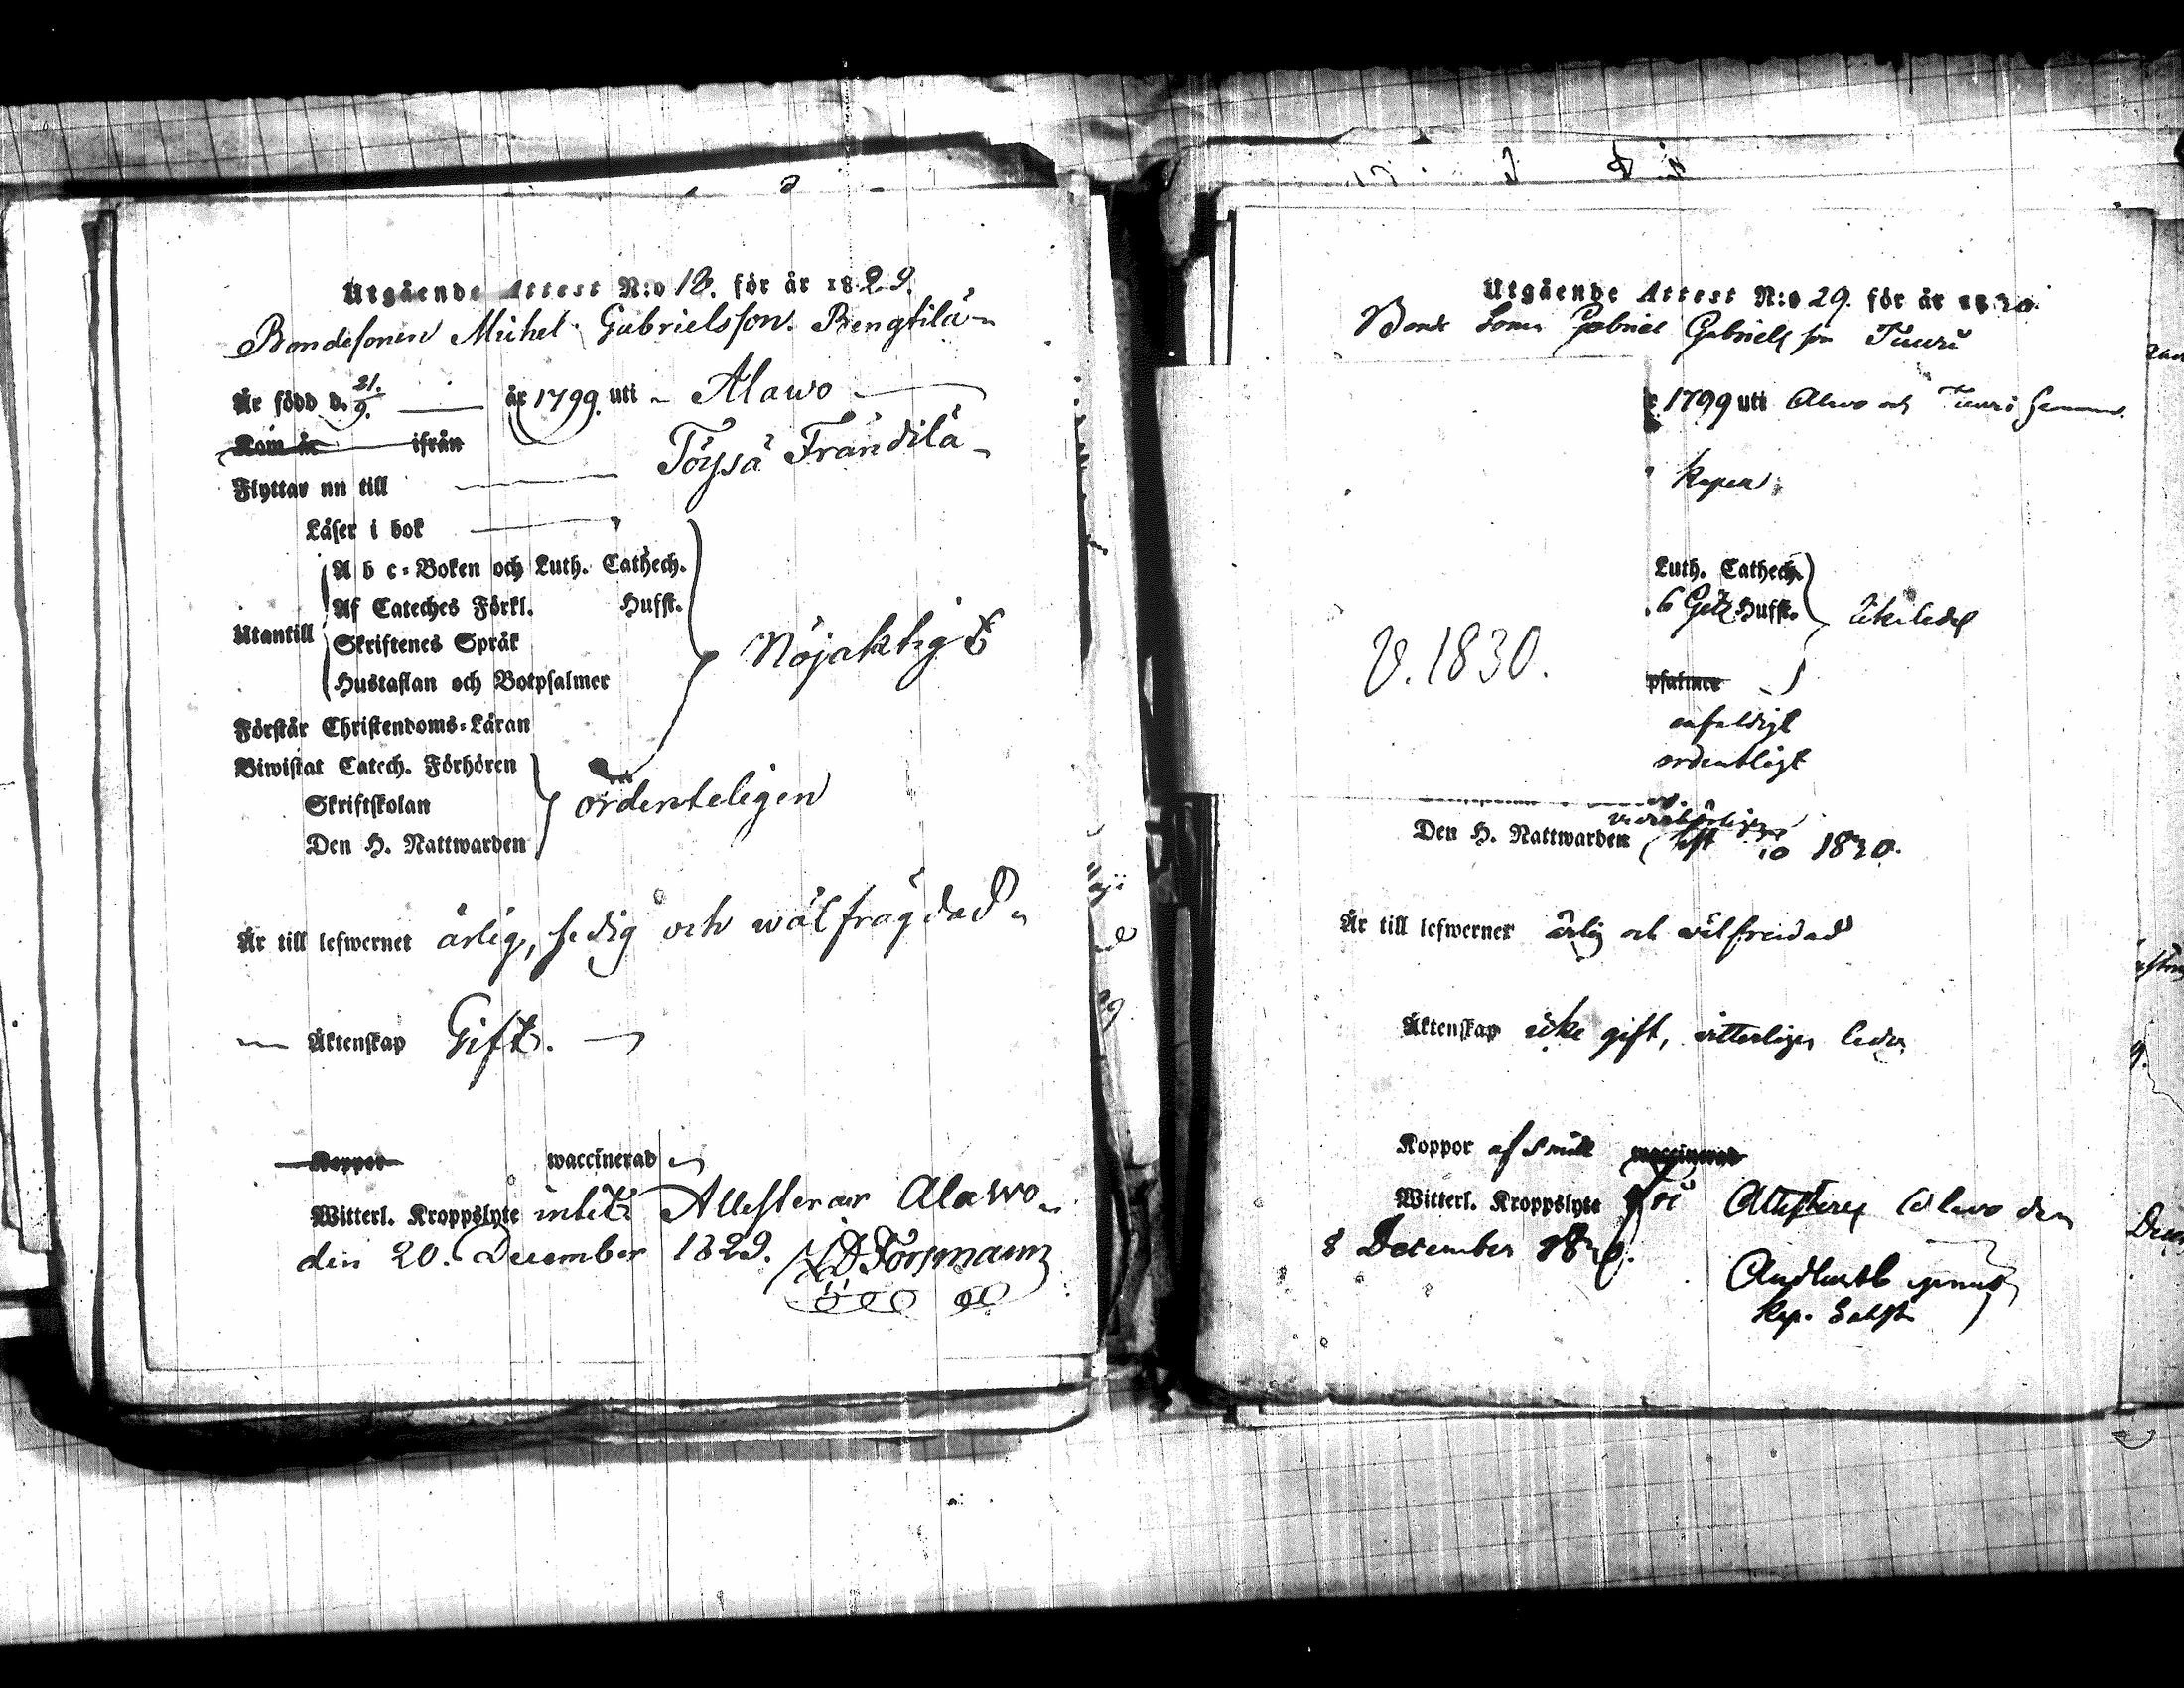 Utgående Attest N:o 18. för år 1829.
Bondesonen Michel Gabrielsson Bengtilä
Är född d. 21/9. år 1799. uti Alawo
Kom år ifrån
Flyttar nu till Töysä Frändilä
Läser i bok
A b c-Boken och Luth. Cathech.
Af Cateches Förkl. Hufst.
Utantill
Skriftenes Språk
Nöjaktigt
Hustaflan och Botpsalmer
Förstår Christendoms-Läran
Biwistat Catech. Förhören
Skriftskolan
ordenteligen
Den H. Nattwarden
Är till lefwernet ärlig, sedig och wälfrägdad
Äktenskap Gift.
Koppor waccinerad
Witterl. Kroppslyte intet Attesterar Alawo
den 20. December 1829. Forsmann
Utgående Attest N:o 29. för år 1830.
Bonde Sonen Gabriel Gabrielsson Tuuri
r 1799 uti Alavo och Tuuri hemman
Luth. Cathech.
Hufst.
V. 1830.
psalmer
enfaldigt
ordentligt
Den H. Nattwarden 10 1830.
Är till lefwernet ärlig och välfreidad
Äktenskap icke gift, vitterligen ledig
Koppor af smitt waccinerad
Witterl. Kroppslyte fri Attesteras Alavo den
8 December 1830.
kap.